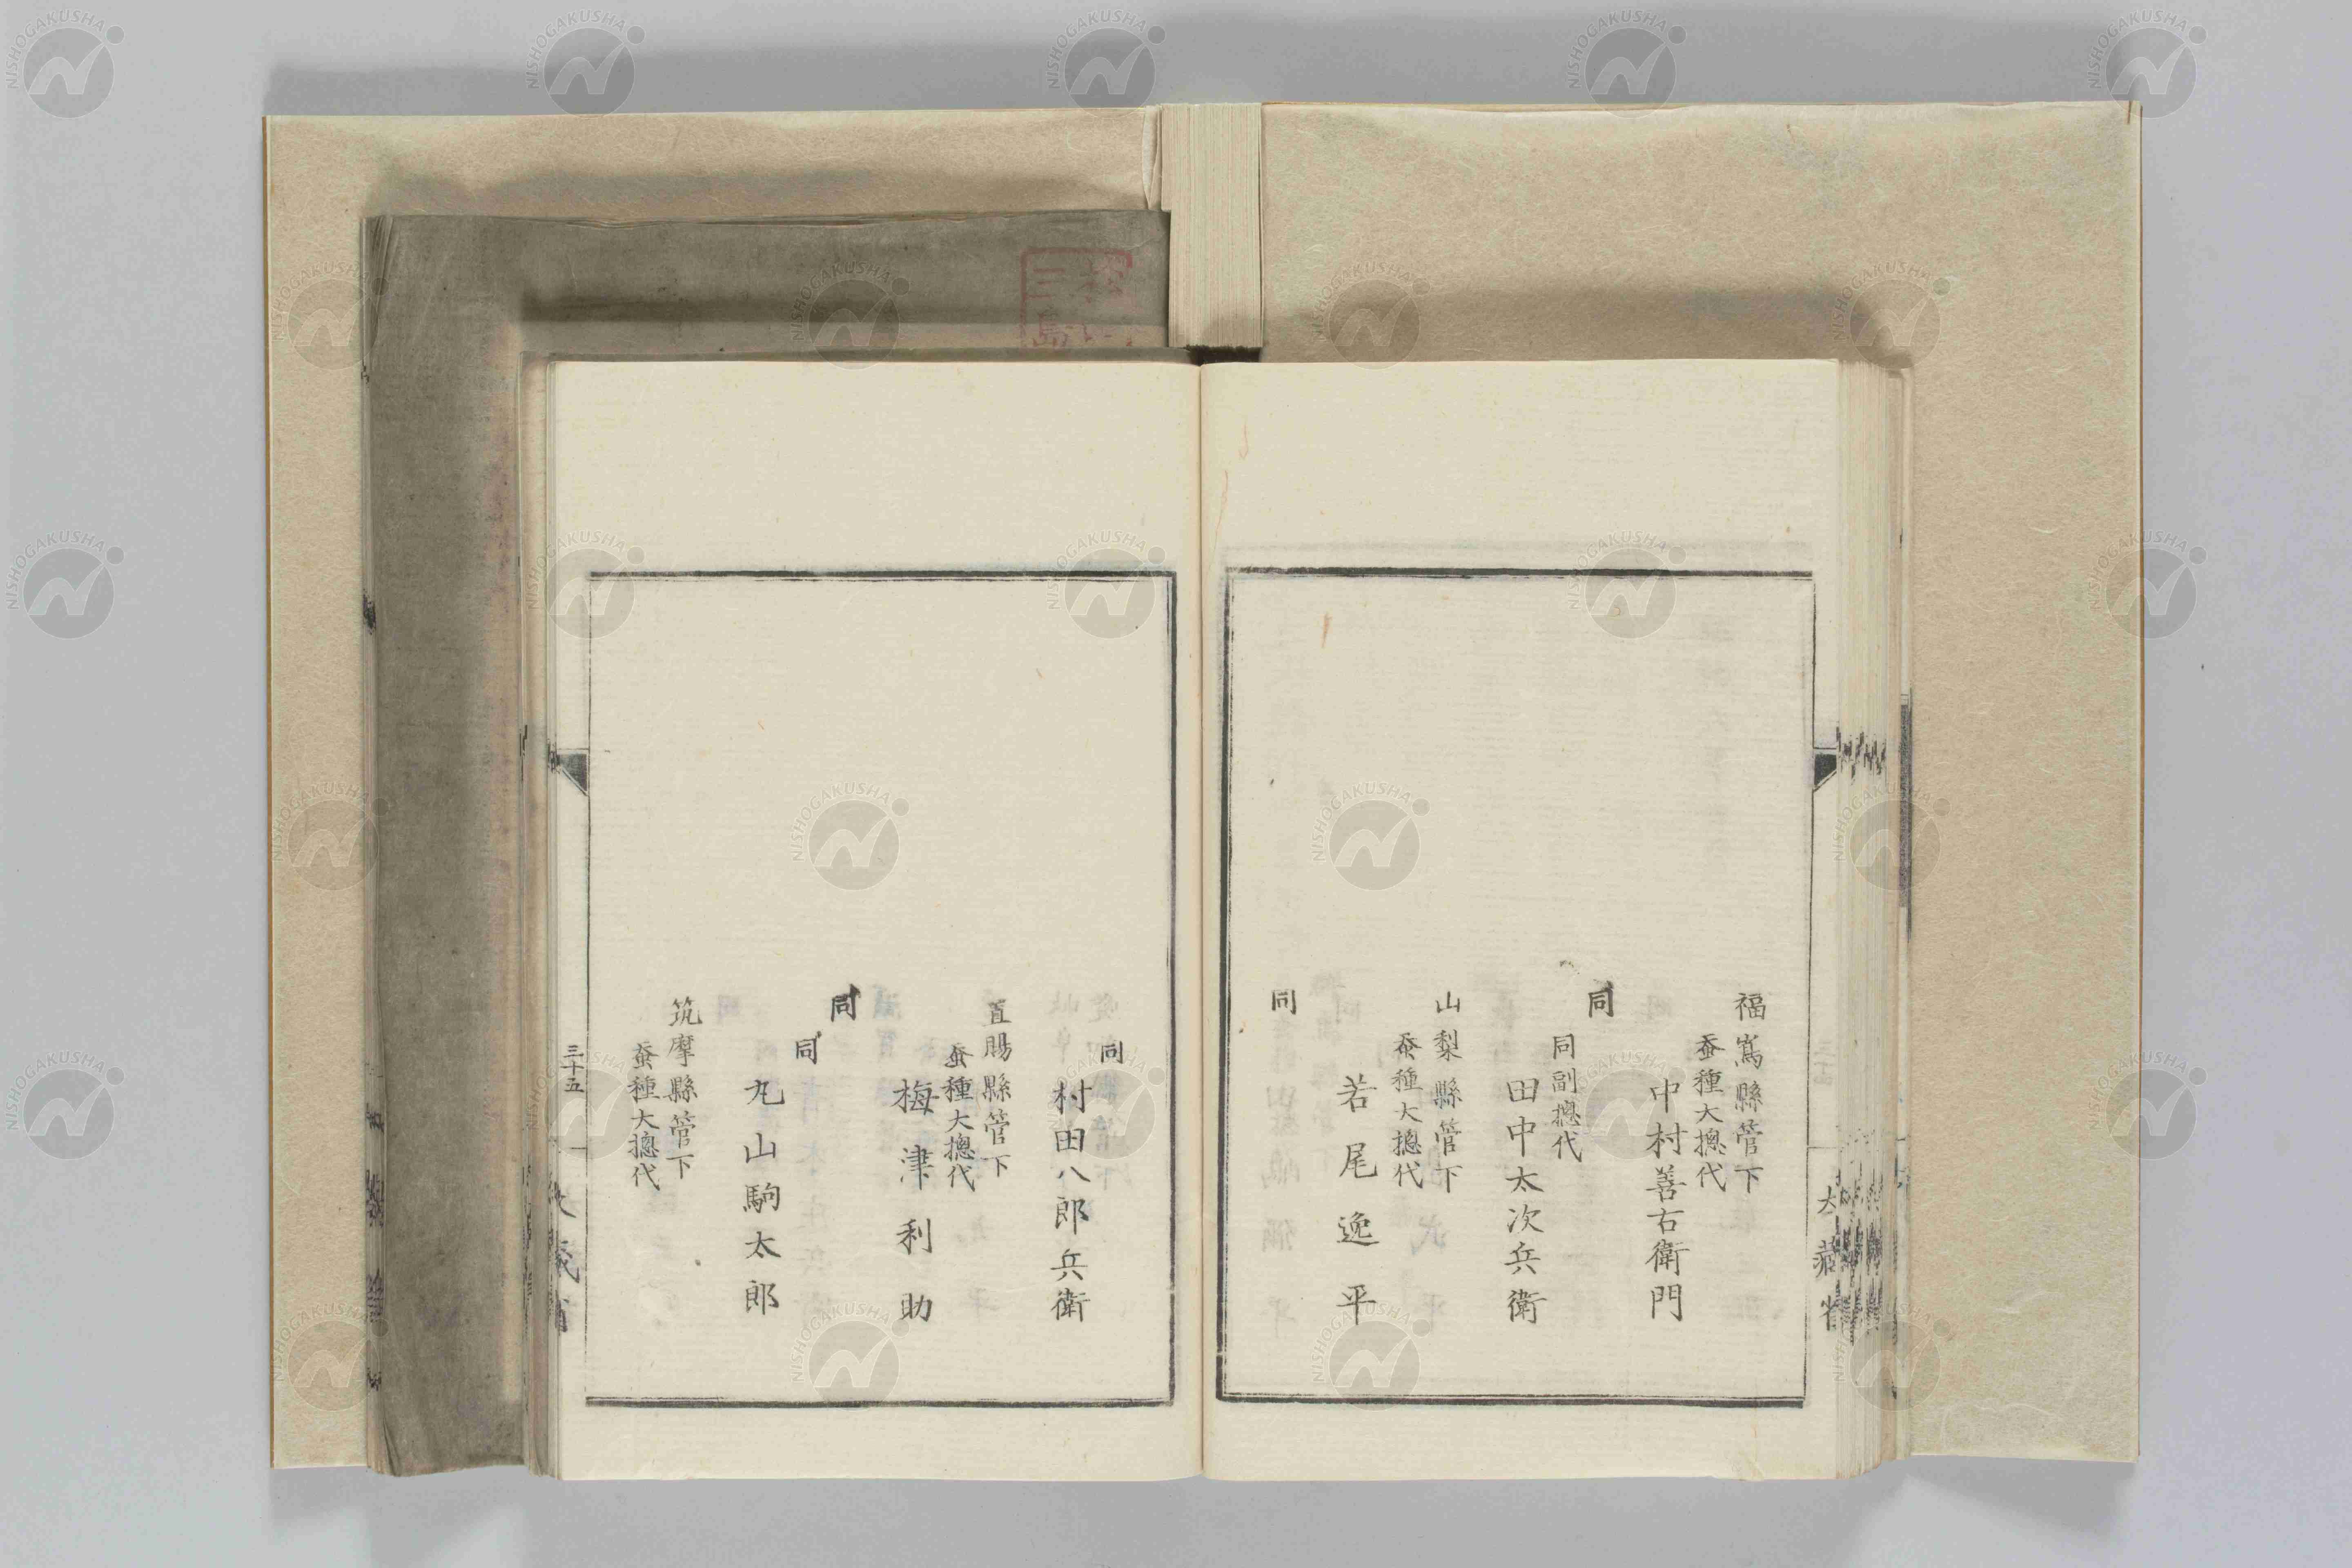 福嶌縣管下
蚕種大摠代
中村善右衛門
同
同副摠代
田中太次兵衛
山梨縣管下
蚕種大摠代
若尾逸平
同
同
村田八郎兵衛
置賜縣管下
蚕種大摠代
梅津利助
同
同
丸山駒太郎
筑摩縣管下
蚕種大摠代
三十五
大藏省
NISHOGAKUSHA